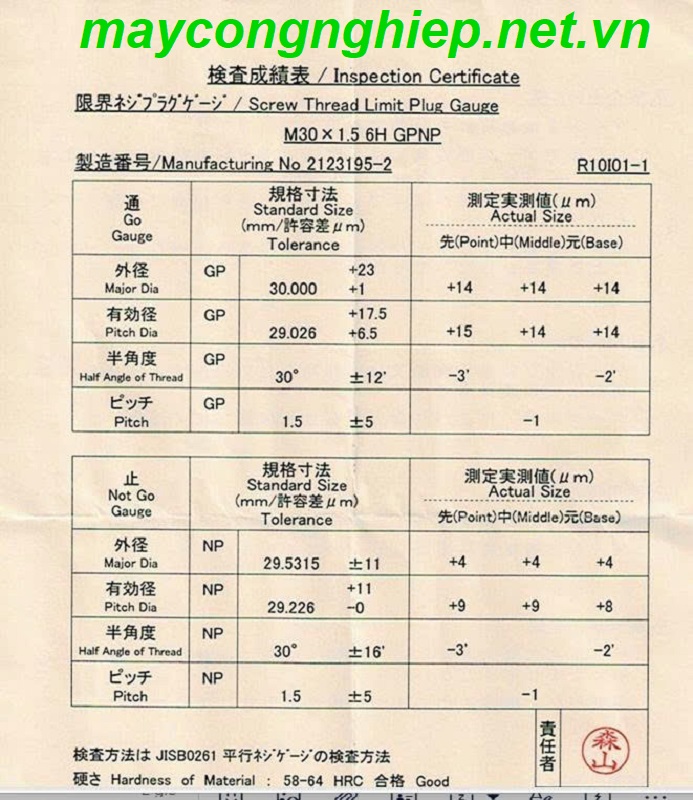 maycongnghiep.net.vn
検査成績表 / Inspection Certificate
限界ネジプラグゲージ / Screw Thread Limit Plug Gauge
M30×1.5 6H GPNP
製造番号/Manufacturing No 2123195-2 R10I01-1
通 規格寸法 測定実測値(μm)
Go Standard Size Actual Size
Gauge (mm/許容差μm)
Tolerance 先(Point)中(Middle)元(Base)
外径 GP +23
Major Dia 30.000 +1 +14 +14 +14
有効径 GP +17.5
Pitch Dia 29.026 +6.5 +15 +14 +14
半角度 GP
Half Angle of Thread 30° ±12' -3' -2'
ピッチ GP
Pitch 1.5 ±5 -1
止 規格寸法 測定実測値(μm)
Not Go Standard Size Actual Size
Gauge (mm/許容差μm)
Tolerance 先(Point)中(Middle)元(Base)
外径 NP
Major Dia 29.5315 ±11 +4 +4 +4
有効径 NP +11
Pitch Dia 29.226 -0 +9 +9 +8
半角度 NP
Half Angle of Thread 30° ±16' -3' -2'
ピッチ NP
Pitch 1.5 ±5 -1
責任者 森山
検査方法は JISB0261 平行ネジゲージの検査方法
硬さ Hardness of Material : 58-64 HRC 合格 Good